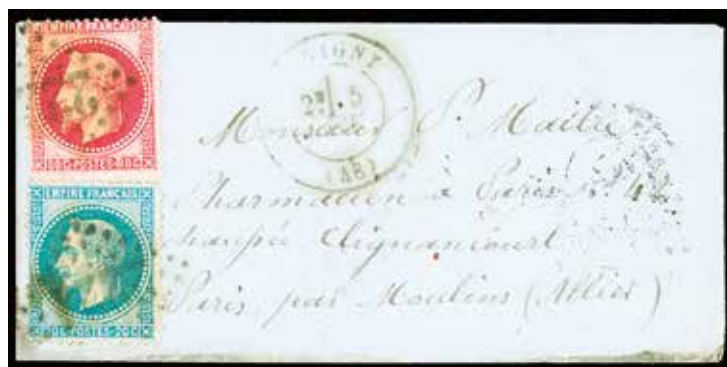 EMPIRE FRANÇAIS
80 C POSTES 80 C
EMPIRE FRANÇAIS
20 C POSTES 20 C
IGNY
2E 5
(46)
Monsieur P. Maitre
Pharmacien à Paris
Clignancourt
Paris par Moulins (Allier)